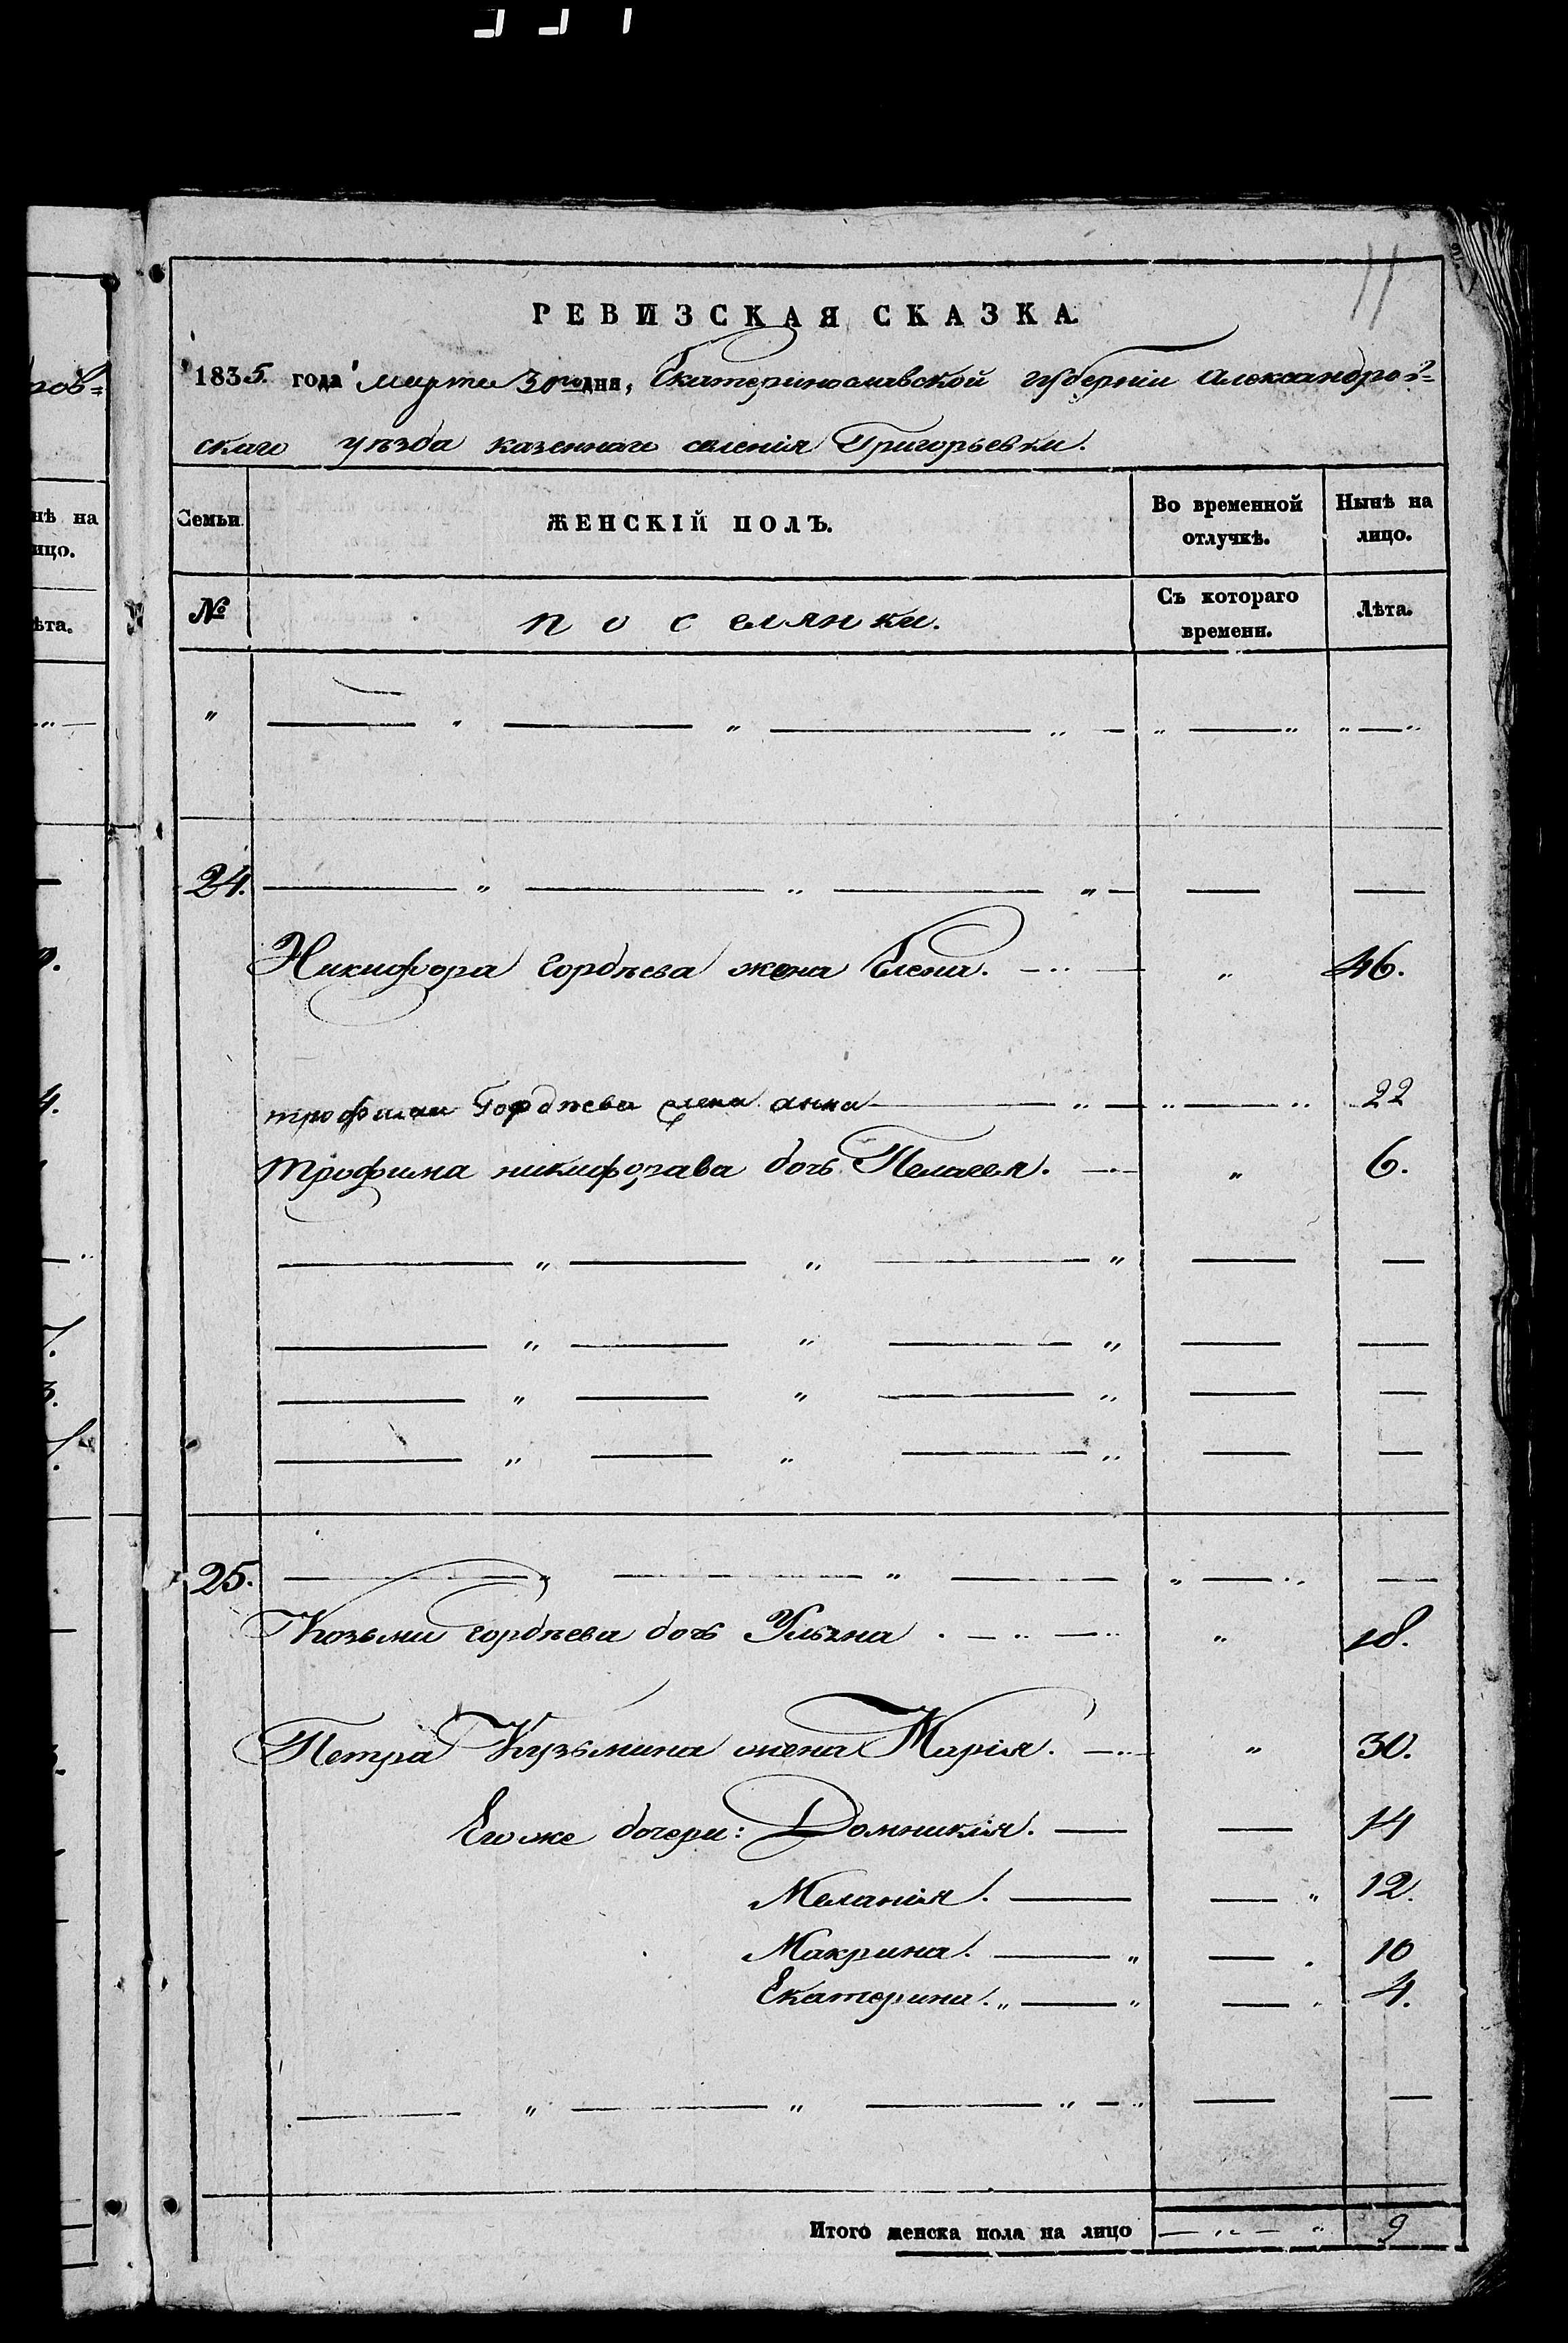 ров=
нѣ на
ицо.
ѣта.
11
РЕВИЗСКАЯ СКАЗКА.
1835. года марта 30го дня, Екатеринославской губерніи Александров=
скаго уѣзда казеннаго селенія Григорьевки.
Семьи
ЖЕНСКІЙ ПОЛЪ.
Во временной отлучкѣ.
Ныне на лицо.
№
поселянки.
Съ котораго времени.
Лѣта.
24.
Никифора Гордѣева жена Елена. 46.
Трофима Гордѣева жена анна 22
Трофима никифорава дочь Пелагея. 6.
25.
Козьми Гордѣева дочь Ульяна. 18.
Петра Кузьмина жена Марія. 30.
Его же дочери: Домникія. 14
Меланія. 12.
Макрина. 10
Екатерина. 4.
Итого женска пола на лицо 9